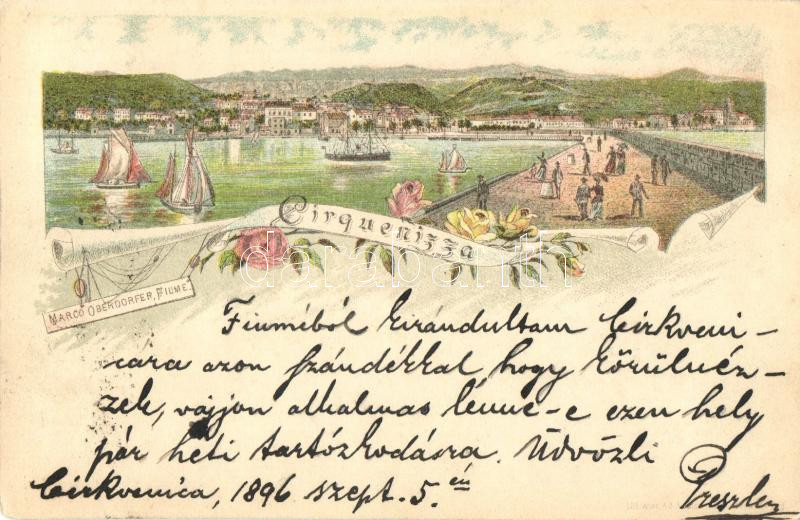 Cirquenizza
MARCO OBERDORFER, FIUME.
Fiuméból kirándultam Cirkveni-
cara azon szándékkal hogy körülnéz-
zek, vajjon alkalmas lenne-e ezen hely
pár heti tartózkodásra. Üdvözli
Cirkvenica, 1896 szept. 5.én
Preszler
darabanth.com